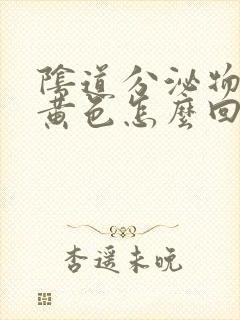 陰道分泌物
黃色怎麼回
杏遥未晚